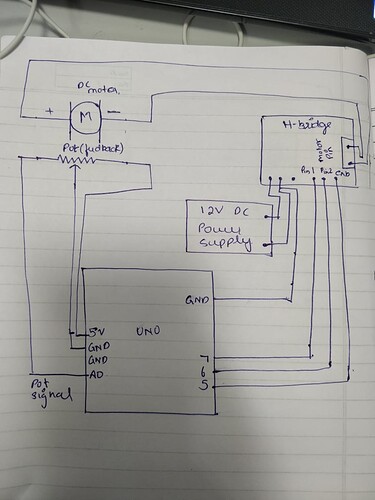 DC
motor
+
-
M
Pot(fudback)
H-bridge
Motor
Pin1
Pin2
GND
12V DC
Power
supply
GND
5V
UNO
GND
GND
A0
7
6
5
Pot
signal